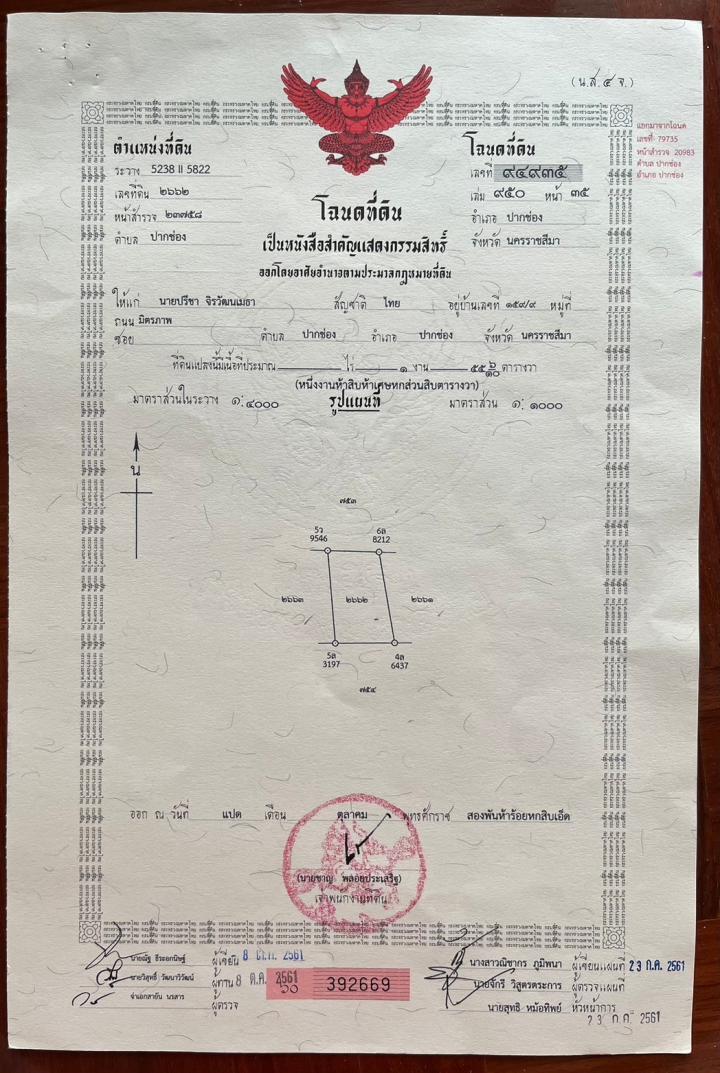 (น.ส. ๔ จ.)
แยกมาจากโฉนด
เลขที่ 79735
หน้าสำรวจ 20983
ตำบล ปากช่อง
อำเภอ ปากช่อง
ตำแหน่งที่ดิน
ระวาง 5238 II 5822
เลขที่ดิน ๒๖๖๒
หน้าสำรวจ ๒๓๗๕๘
ตำบล ปากช่อง
โฉนดที่ดิน
เลขที่ ๙๔๙๓๕
เล่ม ๙๕๐ หน้า ๓๕
อำเภอ ปากช่อง
จังหวัด นครราชสีมา
โฉนดที่ดิน
เป็นหนังสือสำคัญแสดงกรรมสิทธิ์
ออกโดยอาศัยอำนาจตามประมวลกฎหมายที่ดิน
ให้แก่ นายปรีชา จิรวัฒนเมธา สัญชาติ ไทย อยู่บ้านเลขที่ ๑๕๙/๙ หมู่ที่
ถนน มิตรภาพ
ซอย ตำบล ปากช่อง อำเภอ ปากช่อง จังหวัด นครราชสีมา
ที่ดินแปลงนี้มีเนื้อที่ประมาณ ไร่ ๑ งาน ๕๕ ๖/๑๐ ตารางวา
(หนึ่งงานห้าสิบห้าเศษหกส่วนสิบตารางวา)
มาตราส่วนในระวาง ๑:๔๐๐๐ รูปแผนที่ มาตราส่วน ๑: ๑๐๐๐
น
๗๕๓
5ว 6ล
9546 8212
๒๖๖๓ ๒๖๖๒ ๒๖๖๑
5ล 4ล
3197 6437
๗๕๔
ออก ณ วันที่ แปด เดือน ตุลาคม พุทธศักราช สองพันห้าร้อยหกสิบเอ็ด
(นายชาญ พลอยประเสริฐ)
เจ้าพนักงานที่ดิน
นายณัฐ ธีระยกนิษฐ์ ผู้เขียน 8 ต.ค. 2561
นายวิสุทธิ์ วัฒนาวิวัฒน์ ผู้ทาน 8 ต.ค. 2561
จ่าเอกสายัน นรสาร ผู้ตรวจ
๖๐ 392669
นางสาวณิชากร ภูมิพนา ผู้เขียนแผนที่ 23 ก.ค. 2561
นายจักรี วิสูตรตระการ ผู้ตรวจแผนที่
นายสุทธิ หม้อทิพย์ หัวหน้าการ
23 ก.ค. 2561